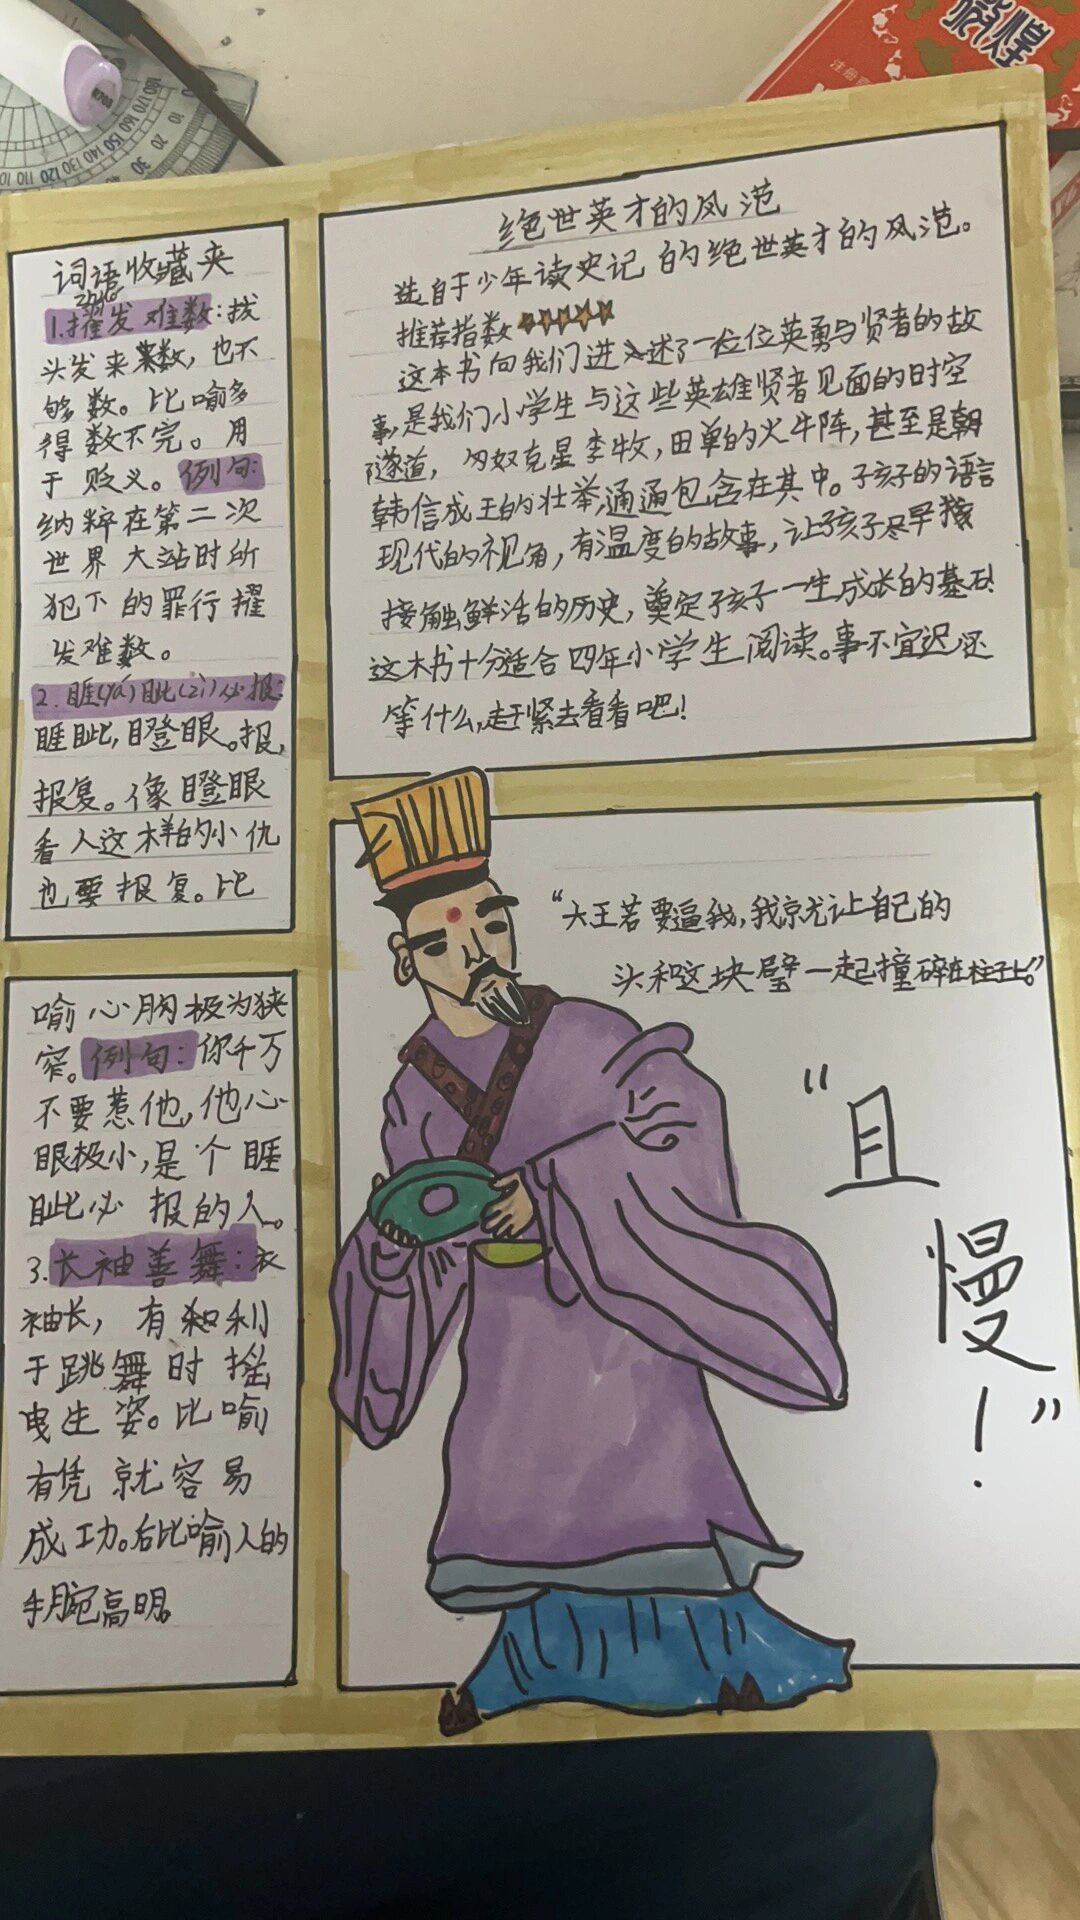 词语收藏夹
zhuó
1.擢发难数:拔
头发来数,也不
够数。比喻多
得数不完。用
于贬义。例句:
纳粹在第二次
世界大站时所
犯下的罪行擢
发难数。
2.睚(yá)眦(zì)必报:
睚眦,瞪眼。报,
报复。像瞪眼
看人这样的小仇
也要报复。比
喻心胸极为狭
窄。例句:你千万
不要惹他,他心
眼极小,是个睚
眦必报的人。
3.长袖善舞:衣
袖长,有利
于跳舞时摇
曳生姿。比喻
有凭就容易
成功。后比喻人的
手腕高明。
绝世英才的风范
选自于少年读史记的绝世英才的风范。
推荐指数
这本书向我们进述了一位位英勇与贤者的故
事,是我们小学生与这些英雄贤者见面的时空
隧道,匈奴克星李牧,田单的火牛阵,甚至是朝
韩信成王的壮举,通通包含在其中。孑孩子的语言
现代的视角,有温度的故事,让孩子尽早
接触鲜活的历史,奠定孩子一生成长的基石!
这本书十分适合四年小学生阅读。事不宜迟还
等什么,赶紧去看看吧!
“大王若要逼我,我就让自己的
头和这块璧一起撞碎在柱子上。”
“且
慢!”
敦煌
180 170 160 150 140 130 120 110 100
10 20 30